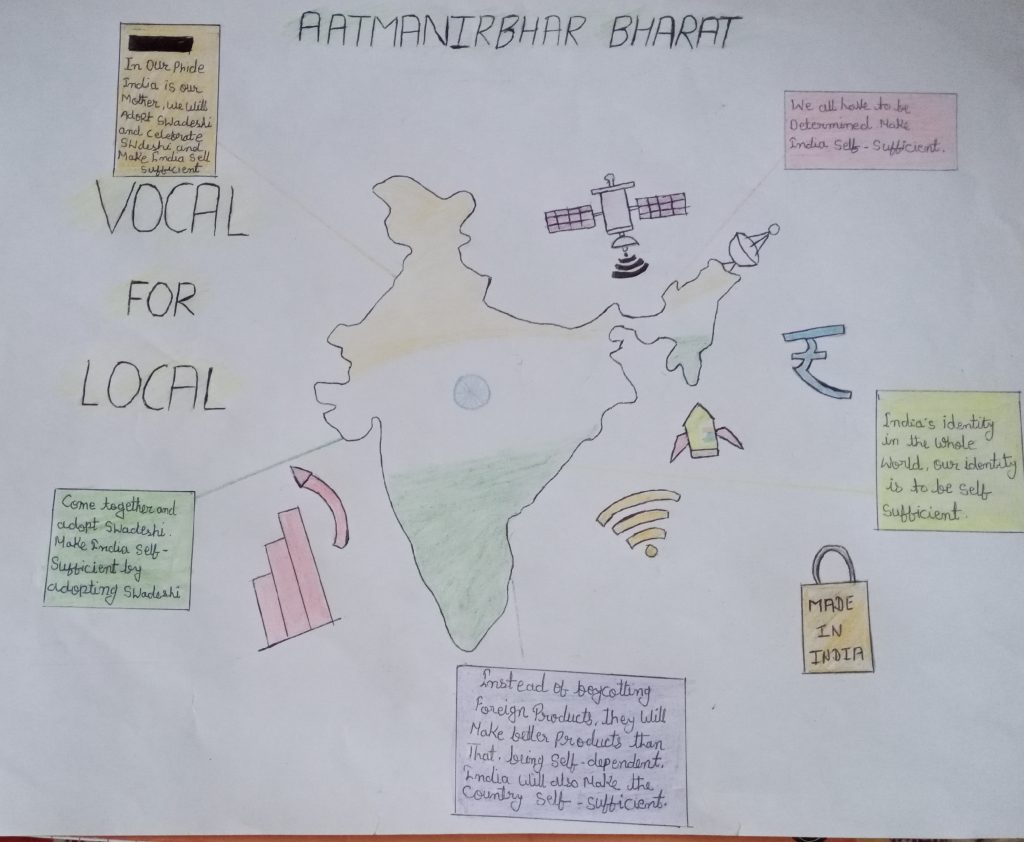 AATMANIRBHAR BHARAT
In Our Phide
India is our
Mother, We Will
Adopt Swadeshi
and celebrate
SWdeshi, and
Make India Self
Sufficient
We all have to be
Determined Make
India Self - Sufficient.
VOCAL
FOR
LOCAL
₹
India's identity
in the whole
World, our identity
is to be Self
Sufficient.
Come together and
adopt Swadeshi.
Make India Self-
Sufficient by
adopting Swadeshi
MADE
IN
INDIA
Instead of boycotting
Foreign Products, They Will
Make better Products than
That. being Self-dependent.
India Will also Make the
Country Self - Sufficient.